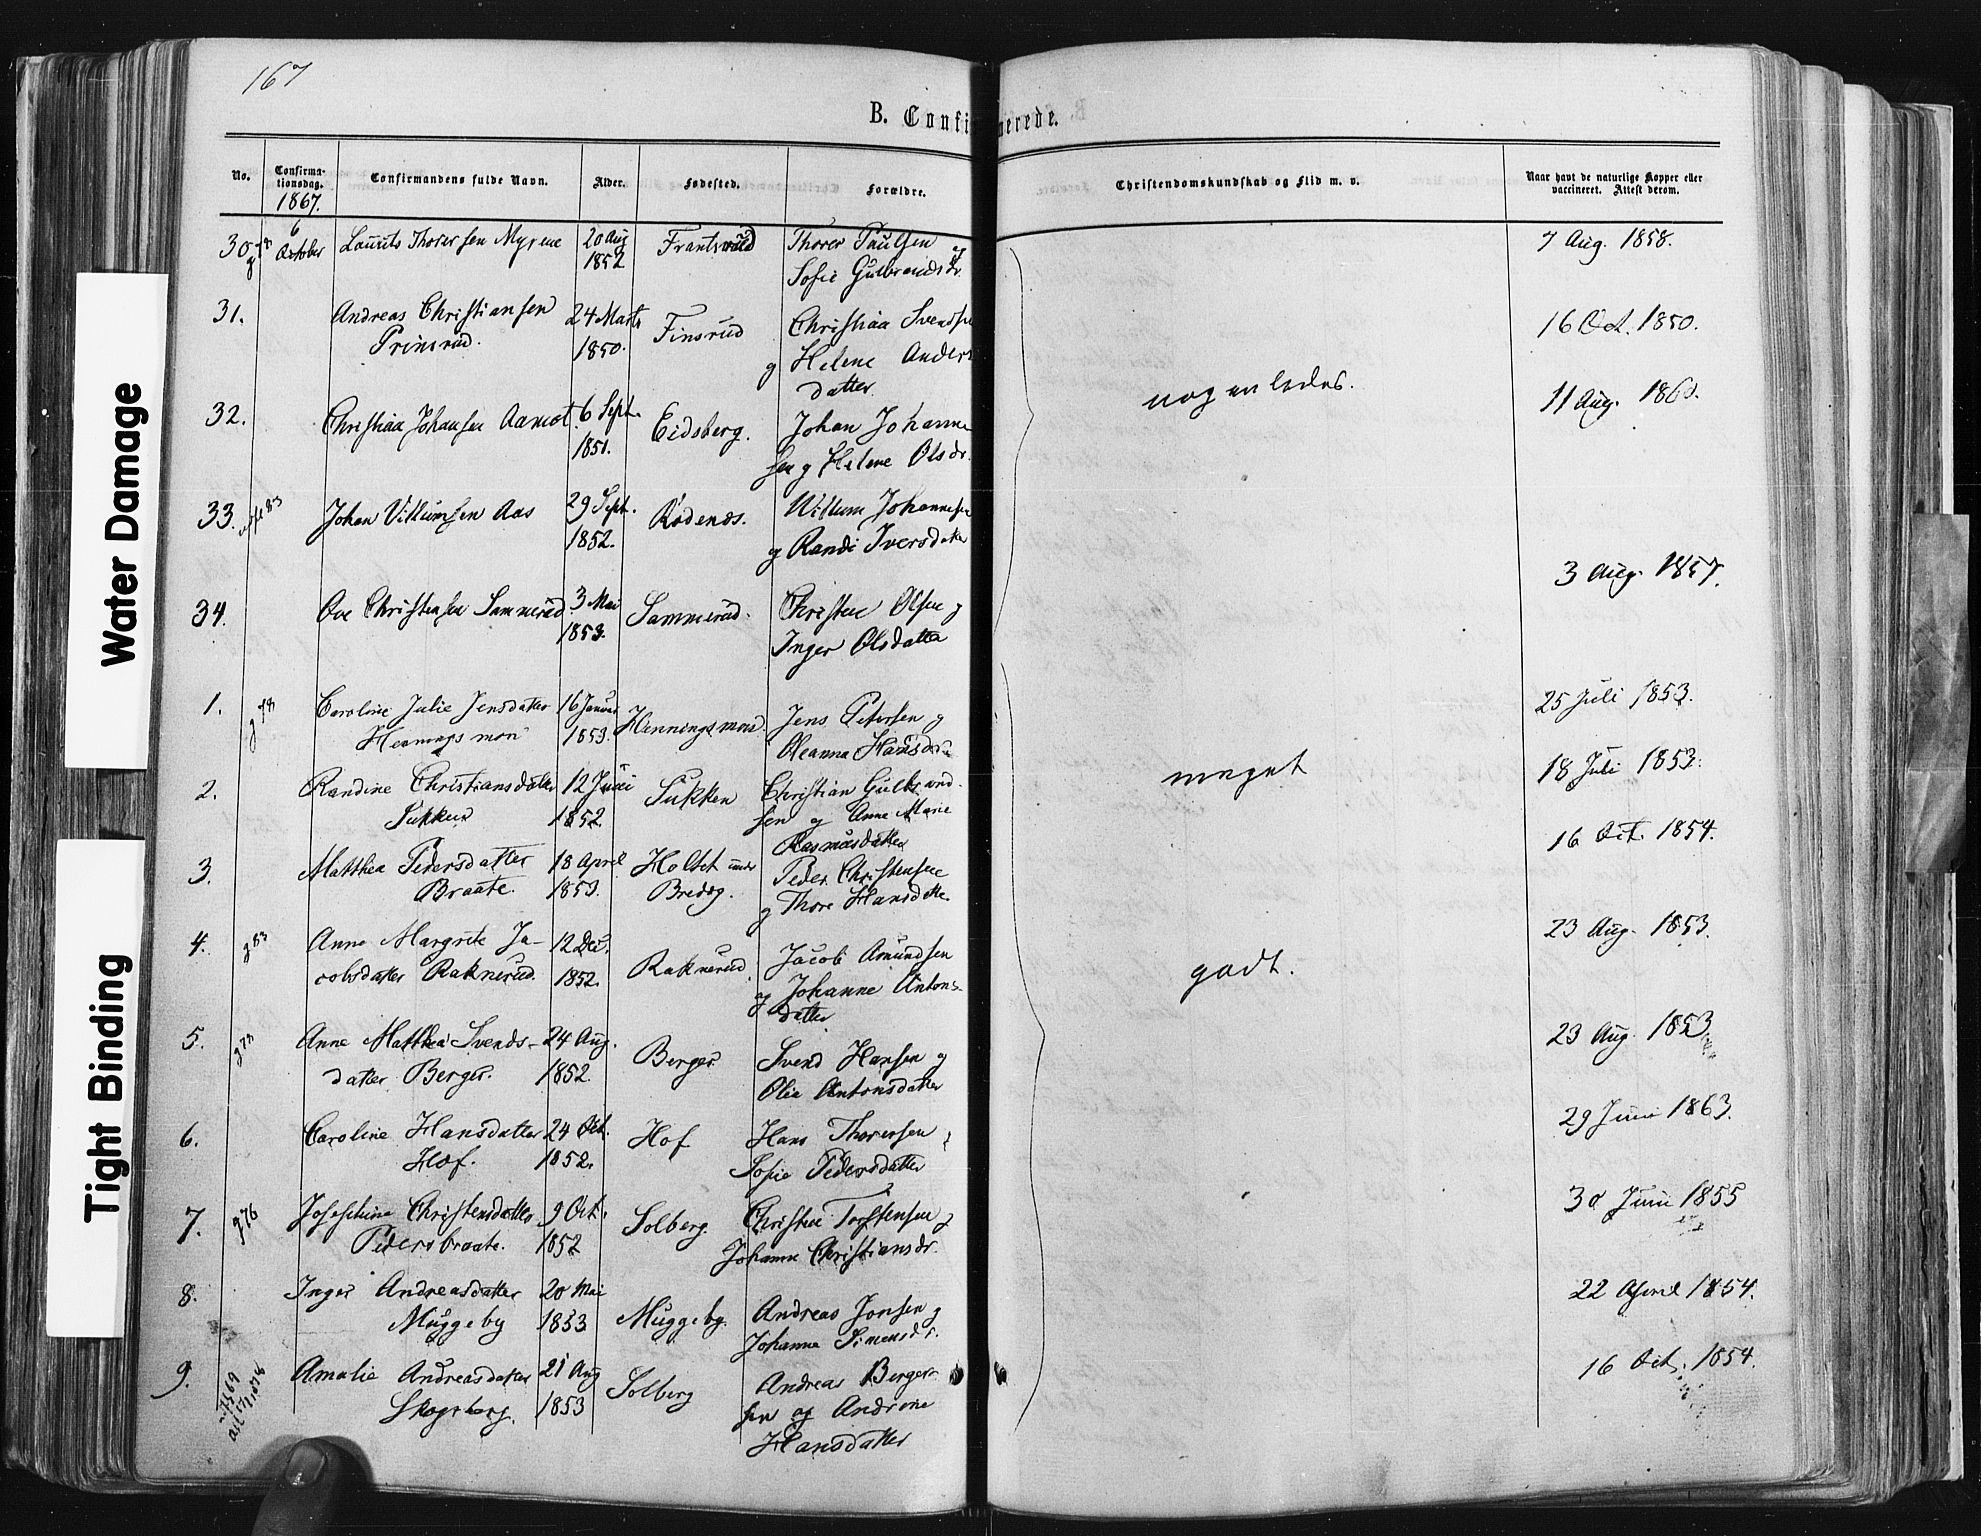 Water Damage
Tight Binding
167
B. Confirmerede.
No.
Confirmationsdag.
1867.
Confirmandens fulde Navn.
Alder.
Fødested.
Forældre.
Christendomskundskab og Flid m. v.
Naar havt de naturlige Kopper eller
vaccineret. Attest derom.
30 6 October Laurits Thoresen Myrene 20 Aug 1852 Thorer Paulsen og
Sofie Gulbrandsdr.
7 Aug. 1858.
31. Andreas Christiansen
Prinsrud. 24 Marts 1850. Finsrud Christian Svendsen
g Helene Anders
datter.
16 Oct. 1850.
32. Christian Johansen Aamot 6 Sept. 1851. Eidsberg. Johan Johanne
sen g Helene Olsdr.
nogenledes.
11 Aug. 1860.
33. Johan Villumsen Aas 29 Sept. 1852. Rødenæs. Willum Johannesen
g Randi Iversdatter
3 Aug. 1857.
34. Ove Christensen Sammerud 3 Mai 1853. Sammerud. Christen Olsen g
Inger Olsdatter
1. g 78 Caroline Julie Jensdatter
Henningsmon 16 Januar 1853. Henningsmon. Jens Petersen g
Oleanna Hansdr
25 Juli 1853.
2. Randine Christiansdatter
Sukken 12 Juni 1852. Sukken Christian Gulbrand-
sen g Anne Marie
Rasmusdatter
meget
18 Juli 1853.
3. Matthea Pedersdatter
Braate. 18 April 1853. Holtet under
Bredeg. Peder Christensen
g Thore Hansdatter.
16 Oct. 1854.
4. g 83 Anne Margrete Ja-
cobsdatter Raknerud. 12 Dec. 1852. Raknerud. Jacob Amundsen
g Johanne Antons-
datter
godt.
23 Aug. 1853.
5. g 78 Anne Mathea Svends-
datter Berger. 24 Aug. 1852. Berger Svend Hansen g
Olia Antonsdatter
23 Aug. 1853.
6. Caroline Hansdatter
Hof. 24 Oct. 1852. Hof Hans Thoresen
Sofie Pedersdatter
29 Juni 1863.
7. g 76 Josephine Christensdatter
Pedersbraate. 9 Oct. 1852 Solberg. Christen Torstensen g
Johanne Christiansdr.
30 Juni 1855
8. Inger Andreasdatter
Muggeby 20 Mai 1853 Muggeby. Andreas Jonsen g
Johanne Simensdr.
22 April 1854.
9. Amalie Andreasdatter
Skogsberg. 21 Aug 1853 Solberg Andreas Berger-
sen og Andrine
Hansdatter
16 Oct. 1854.